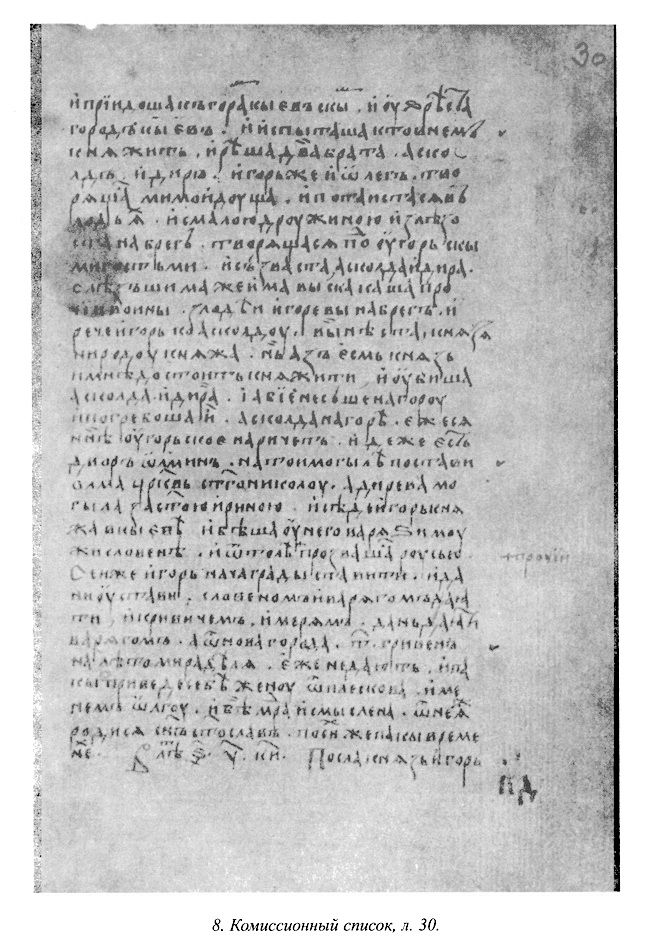 30
и приидоша къ горамъ кыевъскым, и оузрѣста
городъ кыевъ. и испыташа кто в немъ
княжить, и рѣша два брата. аско
лдъ. и диръ. игорь же и ѿлегъ. тво
рящася мимоидоуща. и потаистася въ
лодья. и с малою дроужиною излѣзо
ста на брегъ. творящася подоугорьскы
ми гостьми. и съзваста асколда и дира.
слѣзъшима же има выскакаша про
чии воини. з лодѣи игоревы на брегъ. и
рече игорь ко асколдоу. вы нѣста князя
ни родоу княжа. нъ азъ есмь князь
и мнѣ достоить княжити, и оубиша
асколда. и дира. и абие несъше на гороу
и погребоша и. асколда на горѣ. еже ся
нынѣ оугорьское наричеть. идеже есть
дворъ ѿлминъ. на тои могылѣ постави
ѿлма црквь стго николоу. а дирева мо
гыла за стою ириною. и сѣде игорь кня
жа в кыевѣ и бѣша оу него варязи моу
жи словенѣ. и ѿтолѣ прозвашася роусью.
Сеи же игорь нача грады ставити. и да
ни оустави. словеномъ и варягомъ дая
ти, и кривичемъ. и мерямъ. дань даяти
варягомъ. а ѿ новагорода. т҃. гривенъ
на лѣто мира дѣля. еже не дають. и па
кы приведе себѣ женоу ѿ плескова. име
немъ ѿлгоу. и бѣ мудра и смыслена. ѿ нея
родися снъ стославъ. по сих же пакы време
нех. В лѣт ѕ҃. у҃. к҃и. Посла князь игорь
+ прочїи
к҃д
8. Комиссионный список, л. 30.